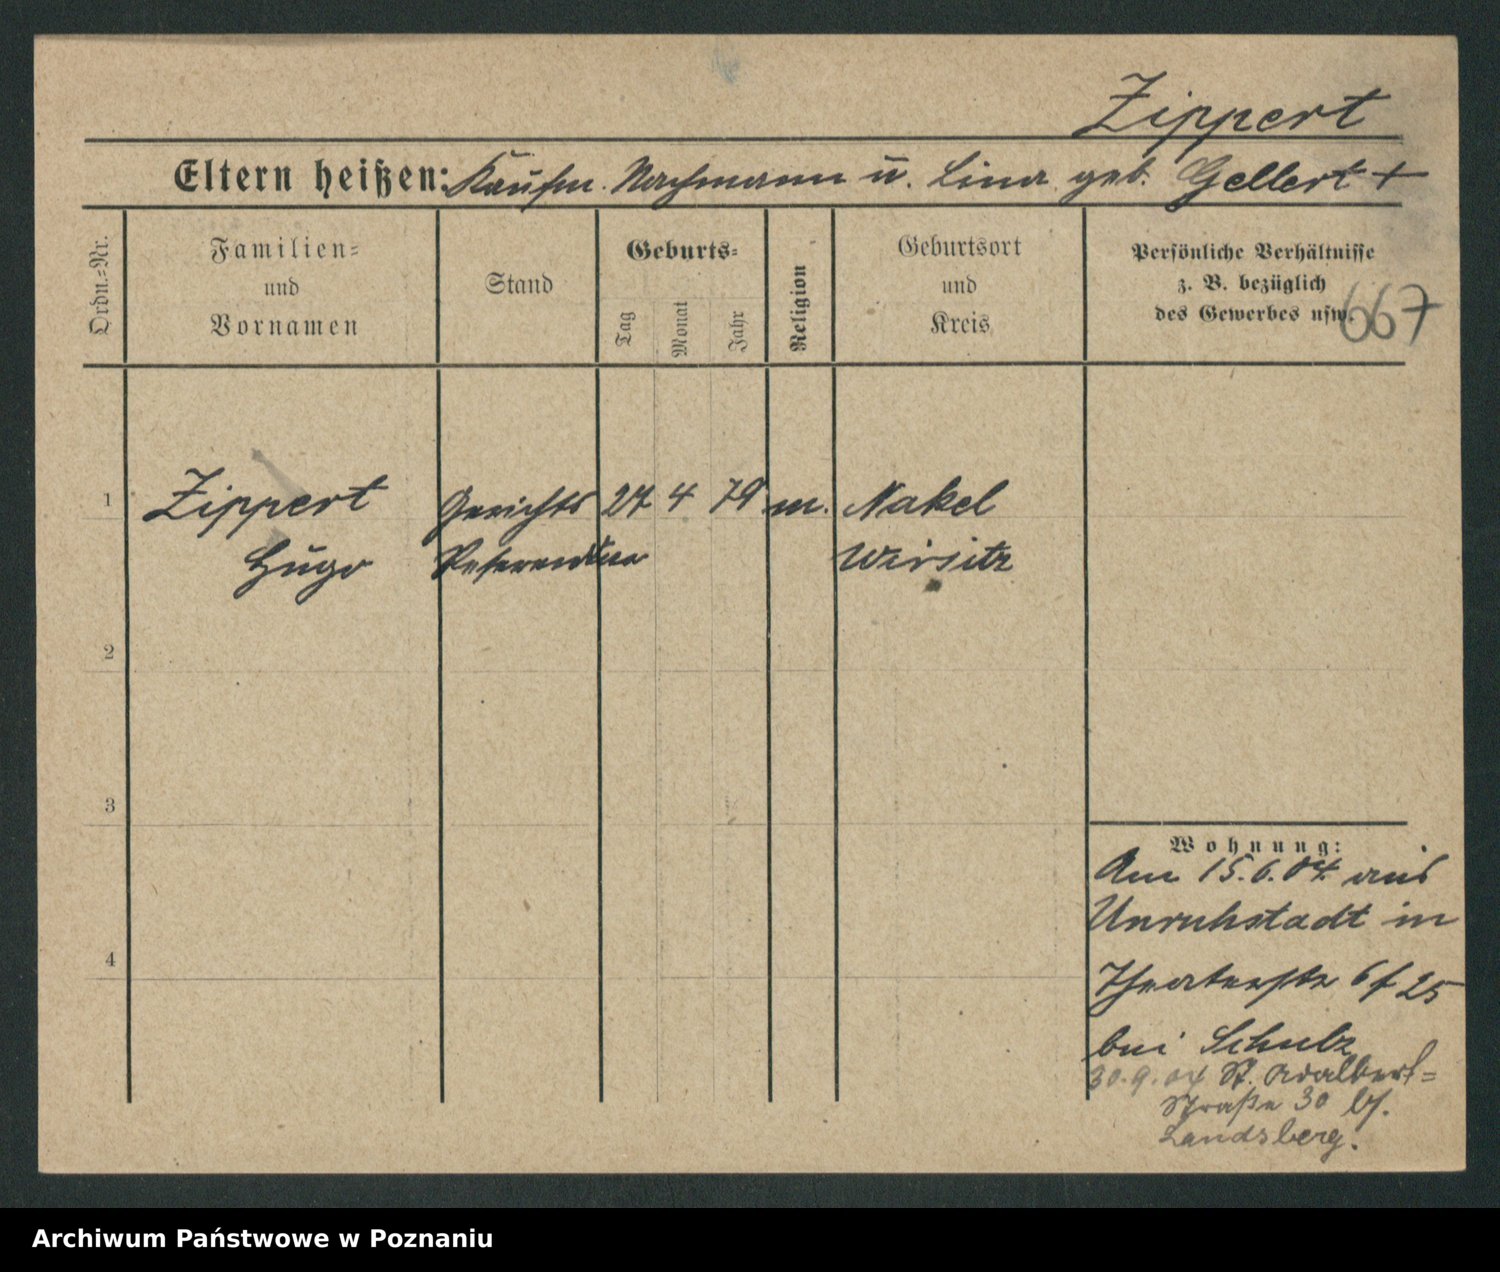 Zippert
Eltern heißen: Kaufm. Nachmann u. Lina geb. Gellert +
Ordn.=Nr.
Familien=
und
Vornamen
Stand
Geburts=
Tag
Monat
Jahr
Religion
Geburtsort
und
Kreis
Persönliche Verhältnisse
z. B. bezüglich
des Gewerbes usw.
667
1 Zippert Gerichts 27 4 79 m. Nakel
Hugo Referendar Wirsitz
2
3
4
Wohnung:
Am 15.6.04 aus
Unruhstadt in
Theaterstr 6
bei Schulz
30.9.04 St. Adalbert=
Straße 30 bf.
Landsberg.
Archiwum Państwowe w Poznaniu